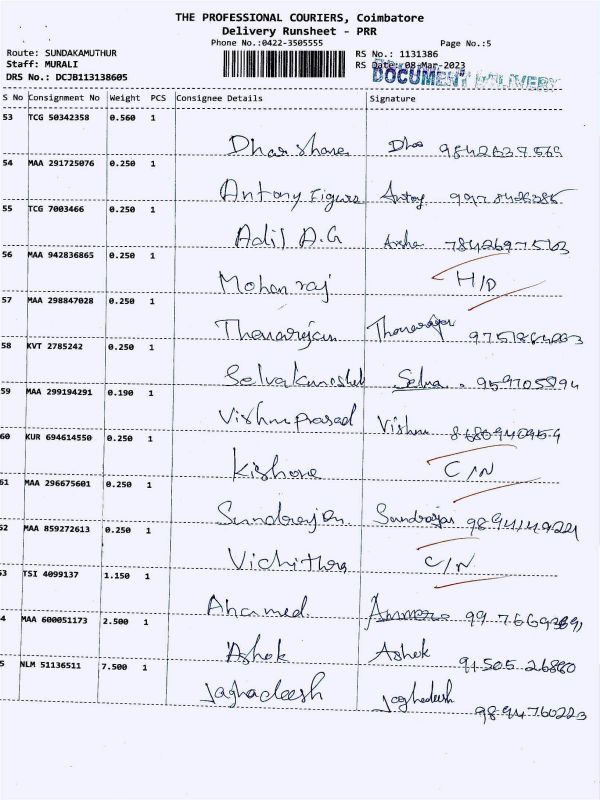 THE PROFESSIONAL COURIERS, Coimbatore
Delivery Runsheet - PRR
Phone No.:0422-3505555 Page No.:5
Route: SUNDAKAMUTHUR RS No.: 1131386
Staff: MURALI RS Date: 08-Mar-2023
DRS No.: DCJB113138605 DOCUMENT DELIVERY
S No Consignment No Weight PCS Consignee Details Signature
53 TCG 50342358 0.560 1
Dharshane
54 MAA 291725076 0.250 1
Antony
55 TCG 7003466 0.250 1
Adil A.G
56 MAA 942836865 0.250 1
Mohanraj H/D
57 MAA 298847028 0.250 1
Thanarajan
58 KVT 2785242 0.250 1
Selva
59 MAA 299194291 0.190 1
Vishnuprasad Vishnu
60 KUR 694614550 0.250 1
Kishore C/N
61 MAA 296675601 0.250 1
Sundrajan
52 MAA 859272613 0.250 1
Vichithra C/N
53 TSI 4099137 1.150 1
Ahamed
4 MAA 600051173 2.500 1
Ashok Ashok 91505 26880
5 NLM 51136511 7.500 1
Jaghadeesh Jaghadeesh 9894760223